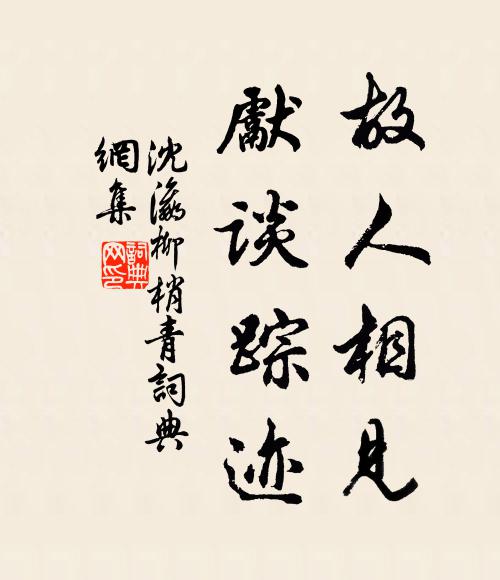 故人相見
獻談踪迹
沈瀛柳梢青詞典
網集
詞典
网印